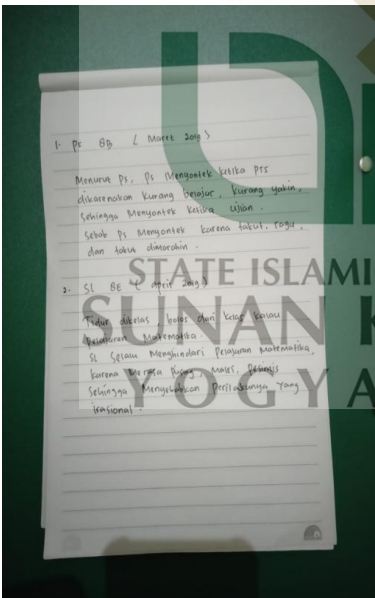 1. PS 8B ( Maret 2019 )
Menurut Ps, Ps Menyontek ketika PTS
dikarenakan kurang belajar, kurang yakin,
sehingga Menyontek ketika ujian.
Sebab Ps Menyontek karena takut, ragu,
dan takut dimarahin.
2. SL 8E ( april 2019 )
Tidur dikelas, bolos dari kelas kalau
pelajaran Matematika.
SL Selalu Menghindari Pelajaran Matematika,
karena Merasa Pusing, Males,
Sehingga Menyebabkan Perilakunya Yang
irasional.
STATE ISLAMI
SUNAN K
YOGYA